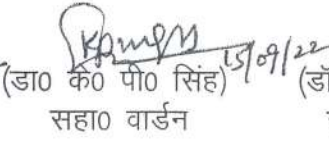 15/09/22
(डा० के० पी० सिंह) (डॉ
सहा० वार्डन